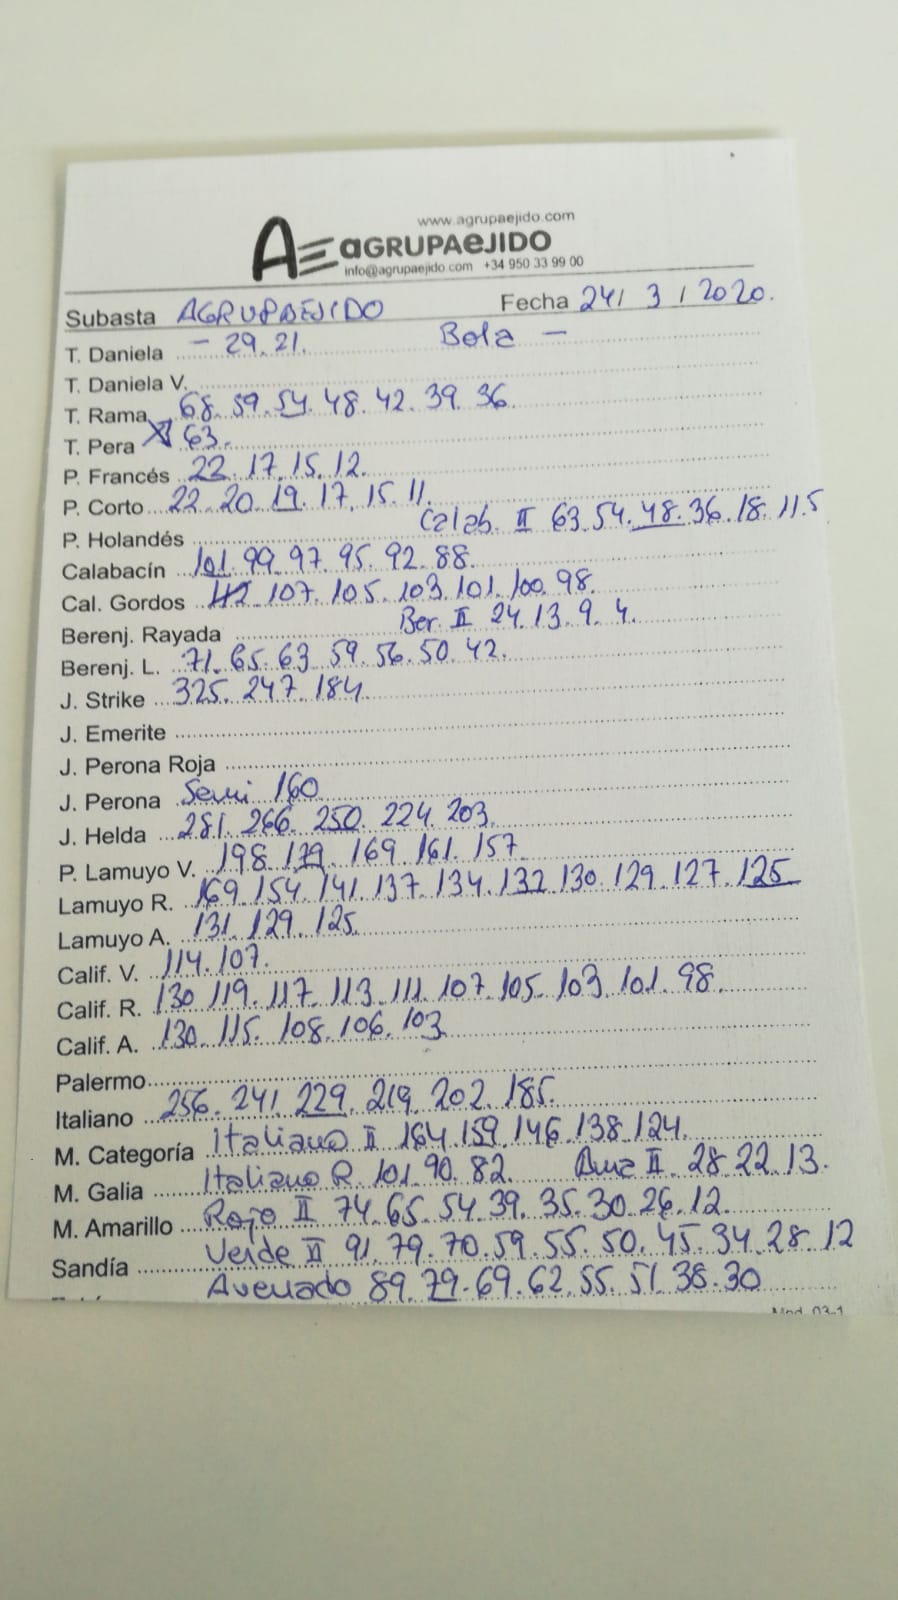 www.agrupaejido.com
AE aGRUPAeJIDO
info@agrupaejido.com +34 950 33 99 00
Subasta AGRUPAEJIDO Fecha 24/ 3 / 2020.
T. Daniela – 29. 21. Bola –
T. Daniela V.
T. Rama 68. 59. 54. 48. 42. 39. 36.
T. Pera 63.
P. Francés 22. 17. 15. 12.
P. Corto 22. 20. 19. 17. 15. 11.
Calab. II 63. 54. 48. 36. 18. 11.5
P. Holandés
Calabacín 101. 99. 97. 95. 92. 88.
Cal. Gordos 112. 107. 105. 103. 101. 100. 98.
Berenj. Rayada Ber. II 24. 13. 9. 4.
Berenj. L. 71. 65. 63. 59. 56. 50. 42.
J. Strike 325. 247. 184.
J. Emerite
J. Perona Roja
J. Perona Semi 160
J. Helda 281. 266. 250. 224. 203.
P. Lamuyo V. 198. 179. 169. 161. 157
Lamuyo R. 169. 154. 141. 137. 134. 132. 130. 129. 127. 125
Lamuyo A. 131. 129. 125.
Calif. V. 114. 107.
Calif. R. 130. 119. 117. 113. 111. 107. 105. 103. 101. 98.
Calif. A. 130. 115. 108. 106. 103
Palermo
Italiano 256. 241. 229. 219. 202. 185.
M. Categoría Italiano II 164. 159. 146. 138. 124.
M. Galia Italiano R. 101. 90. 82. II. 28. 22. 13.
M. Amarillo Rojo II 74. 65. 54. 39. 35. 30. 26. 12.
Sandía Verde II 91. 79. 70. 59. 55. 50. 45. 34. 28. 12
Asurcado 89. 79. 69. 62. 55. 51. 38. 30